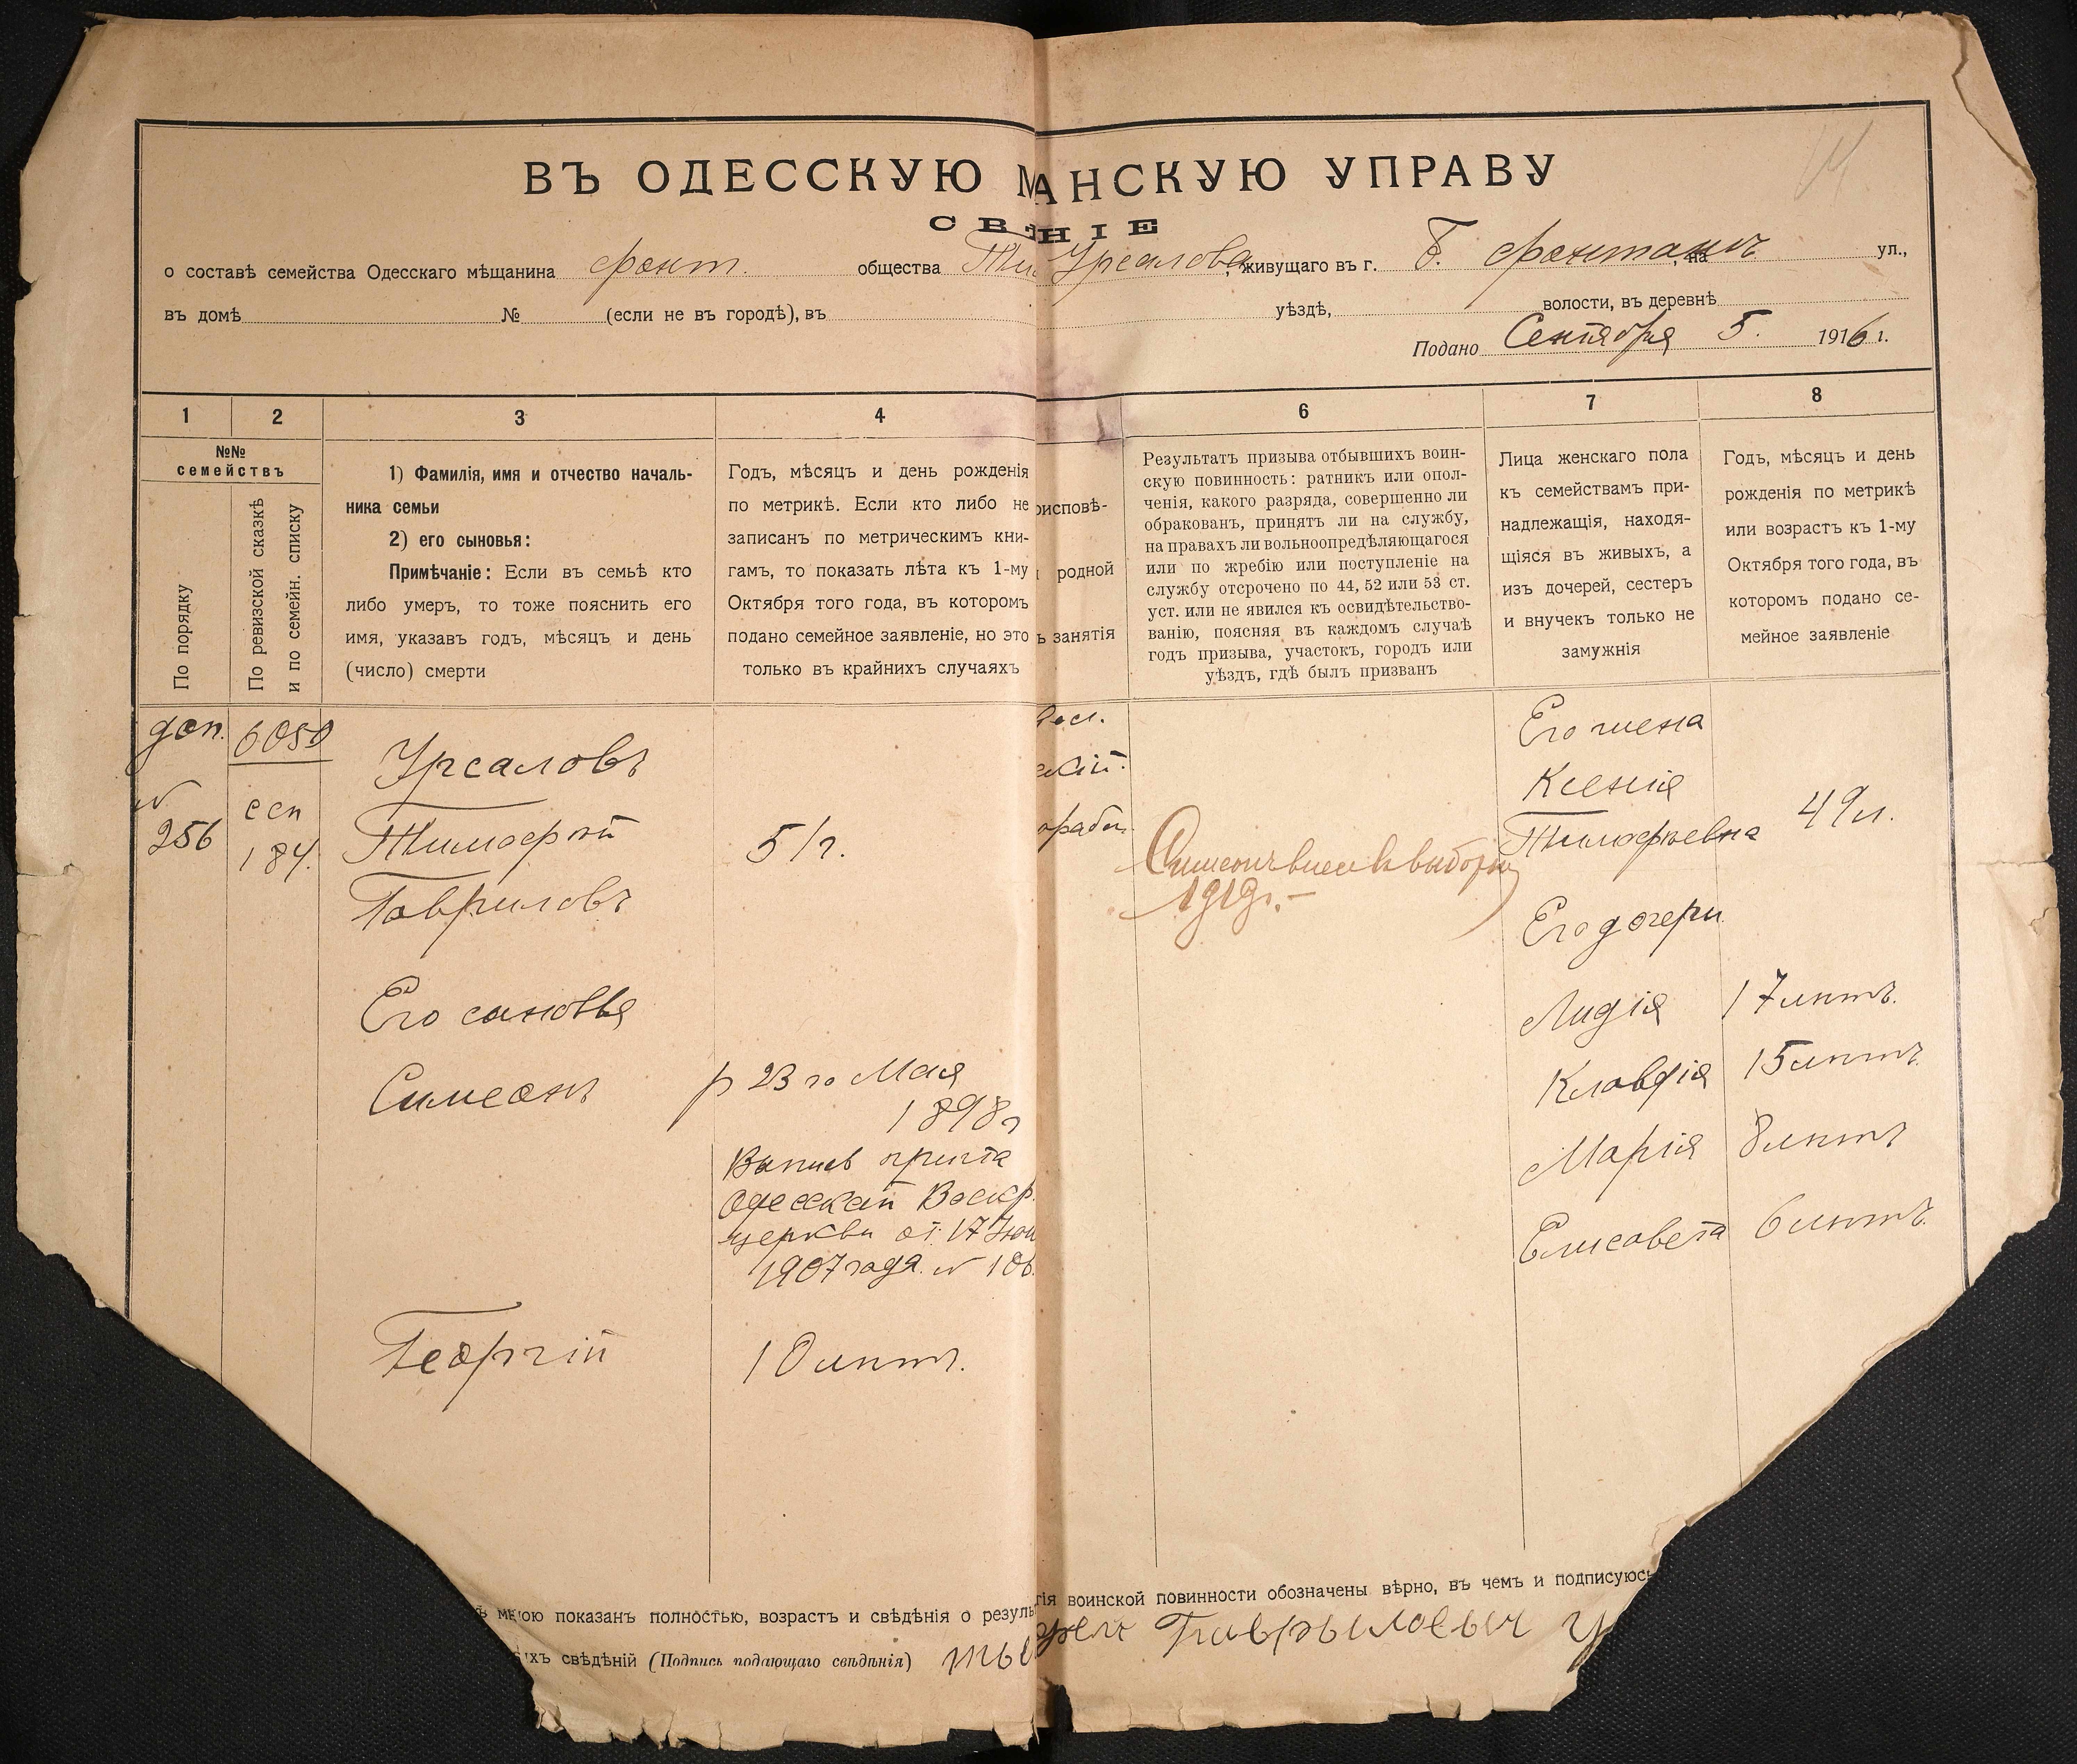 ВЪ ОДЕССКУЮ М АНСКУЮ УПРАВУ
СВ НІЕ
о составѣ семейства Одесскаго мѣщанина фонт. общества Тим Урсалова, живущаго въ г. Б. Фонтанъ, на ул.,
въ домѣ № (если не въ городѣ), въ уѣздѣ, волости, въ деревнѣ
Подано Сентября 5. 1916 г.
1 2 3 4 6 7 8
№№
семействъ
По порядку
По ревизской сказкѣ
и по семейн. списку
1) Фамилія, имя и отчество началь-
ника семьи
2) его сыновья:
Примѣчаніе: Если въ семьѣ кто
либо умеръ, то тоже пояснить его
имя, указавъ годъ, мѣсяцъ и день
(число) смерти
Годъ, мѣсяцъ и день рожденія
по метрикѣ. Если кто либо не
записанъ по метрическимъ кни-
гамъ, то показать лѣта къ 1-му
Октября того года, въ которомъ
подано семейное заявленіе, но это
только въ крайнихъ случаяхъ
рисповѣ-
родной
ъ занятія
Результатъ призыва отбывшихъ воин-
скую повинность: ратникъ или опол-
ченія, какого разряда, совершенно ли
обракованъ, принятъ ли на службу,
на правахъ ли вольноопредѣляющагося
или по жребію или поступленіе на
службу отсрочено по 44, 52 или 53 ст.
уст. или не явился къ освидѣтельство-
ванію, поясняя въ каждомъ случаѣ
годъ призыва, участокъ, городъ или
уѣздъ, гдѣ былъ призванъ
Лица женскаго пола
къ семействамъ при-
надлежащія, находя-
щіяся въ живыхъ, а
изъ дочерей, сестеръ
и внучекъ только не
замужнія
Годъ, мѣсяцъ и день
рожденія по метрикѣ
или возрастъ къ 1-му
Октября того года, въ
которомъ подано се-
мейное заявленіе
доп.
№
256
6050
сеп
184.
Урсаловъ
Тимофей
Гавриловъ
51 г.
скій.
рабоч.
Симеонъ внесенъ в выборку
1919г.
Его жена
Ксенія
Тимофѣевна 49 л.
Его дочери
Его сыновья
Лидія 17 лѣтъ.
Симеонъ р 23 го Мая
1898 г
Клавдія 15 лѣтъ.
Выпись причта
Одесской Воскр.
церкви от. 17 Іюн
1907 года № 106.
Марія 8 лѣтъ
Елисавета 6 лѣтъ.
Георгій 10 лѣтъ.
ъ мною показанъ полностью, возрастъ и свѣдѣнія о резуль
гія воинской повинности обозначены вѣрно, въ чемъ и подписуюсь
ыхъ свѣдѣній (Подпись подающаго свѣдѣнія) Ты фей Гаврылович У